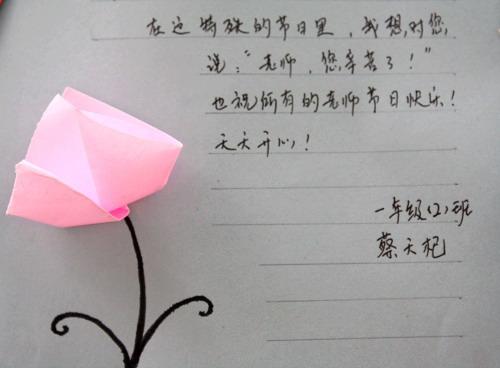 在这特殊的节日里，我想对您
说：“老师，您辛苦了！”
也祝所有的老师节日快乐！
天天开心！
一年级(2)班
蔡天杞